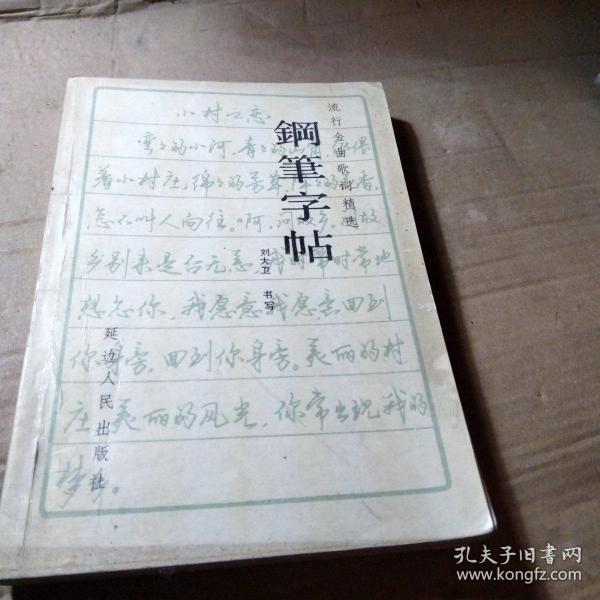 流行金曲歌词精选
鋼筆字帖
刘大卫 书写
延边人民出版社
小村之恋
弯々的小河，青々的山冈，依偎
着小村庄，绵々的芳草
怎不叫人向往。啊，问故乡，故
乡别来是否无恙，我时常时常地
想念你，我愿意我愿意回到
你身旁，回到你身旁。美丽的村
庄，美丽的风光，你常出现我的
梦乡。
孔夫子旧书网
www.kongfz.com